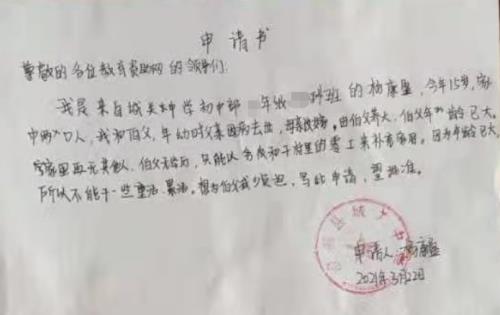 申请书
尊敬的各位教育资助网的领导们:
我是来自城关中学初中部 年级 班的杨康星,今年15岁,家
中两口人,我和伯父,年幼时父亲因病去世,母亲改嫁,由伯父养大,伯父年龄已大,
家里再无其他人,伯父无 只能以务农和干 里的零工来补贴家用。因为年龄已大,
所以不能干一些重活、累活。想为伯父减少负担,写此申请,望批准。
申请人:杨康
2021年3月22日